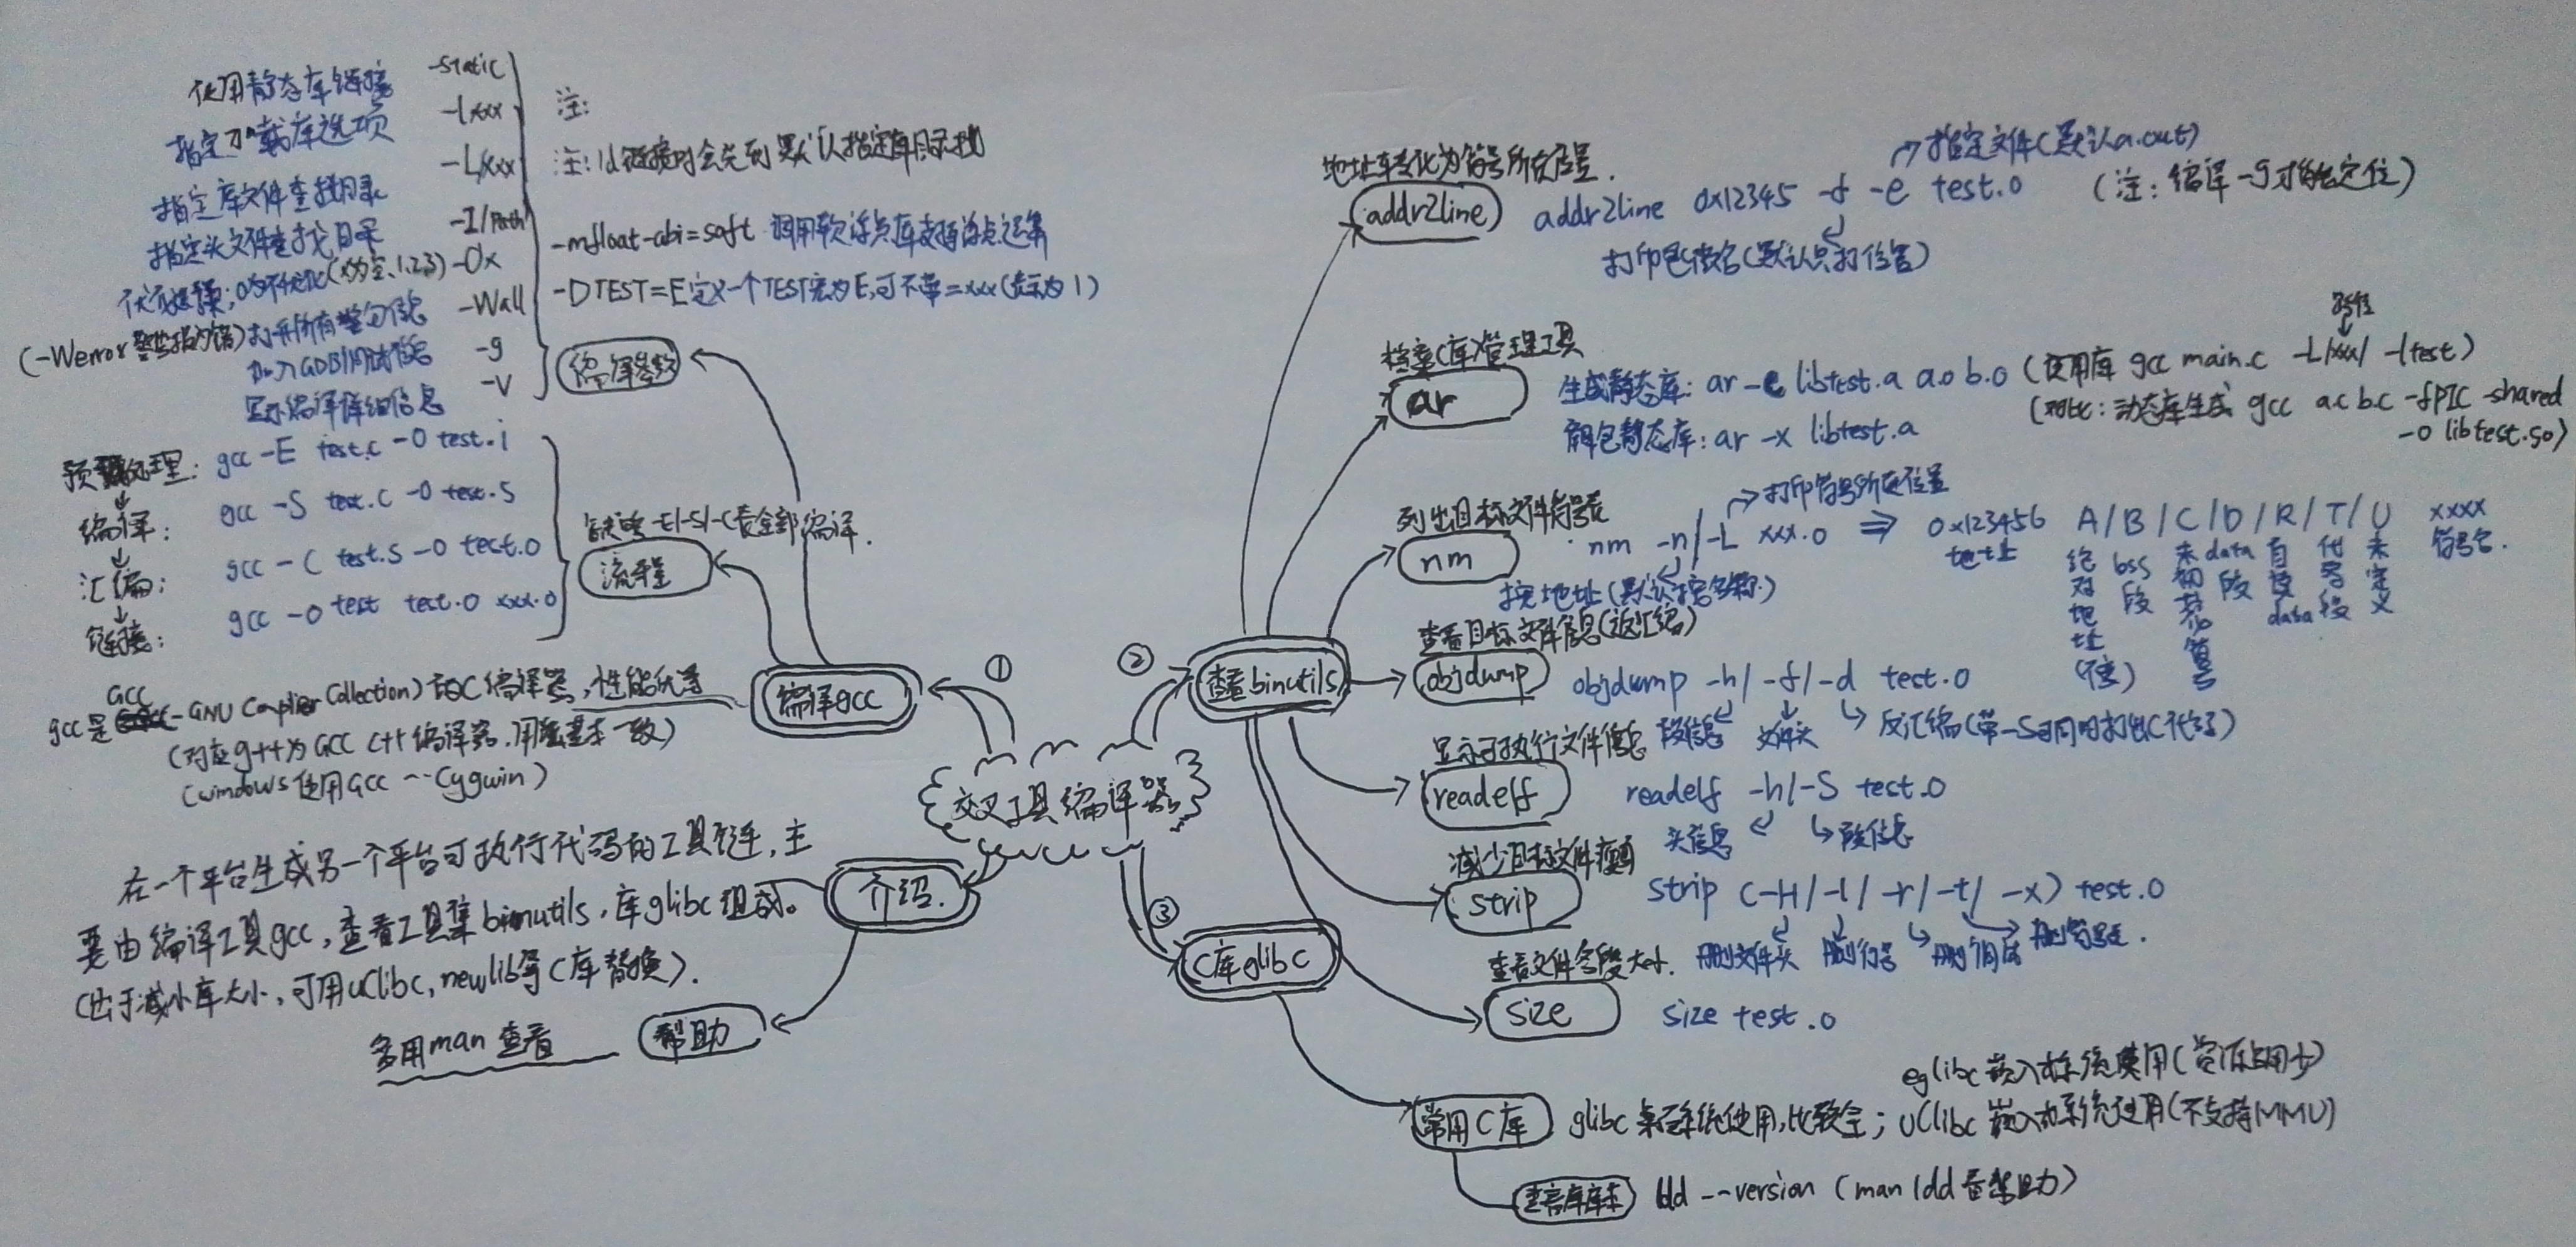 交叉工具编译器
①
编译gcc
编译参数
使用静态库链接 -static
指定加载库选项 -lxxx
指定库文件查找目录 -L/xxx
指定头文件查找目录 -I/Path
优化选择;0为不优化(x为空、1、2、3) -Ox
(-Werror 警告报为错) 打开所有警匀信息 -Wall
加入GDB调试信息 -g
显示编译详细信息 -v
注:
注: ld链接时会先到默认指定库目录找
-mfloat-abi=soft 调用软浮点库支持浮点运算
-DTEST=E 定义一个TEST宏为E,可不带=xxx(表示为1)
流程
缺省 -E/-S/-C 是全部编译.
预处理: gcc -E test.c -o test.i
编译: gcc -S test.c -o test.S
汇编: gcc -C test.S -o test.o
链接: gcc -o test test.o xxx.o
GCC
gcc是 -GNU Complier Collection) 的C编译器,性能优秀
(对应g++为GCC C++编译器,用法基本一致)
(windows使用GCC --Cygwin)
介绍.
在一个平台生成另一个平台可执行代码的工具链,主
要由编译工具gcc,查看工具集binutils,库glibc组成。
(出于减小库大小,可用uClibc,newlib等C库替换).
帮助
多用man查看
②
查看binutils
地址转化为符号所在位置.
addr2line
addr2line 0x12345 -f -e test.o (注: 编译-g才能定位)
指定文件(默认a.out)
打印函数名(默认只打位置)
档案(库)管理工具
ar
生成静态库: ar -c libtest.a a.o b.o (使用库 gcc main.c -L/xxx/ -ltest)
路径
(对比: 动态库生成 gcc a.c b.c -fPIC -shared
-o libtest.so)
解包静态库: ar -x libtest.a
列出目标文件符号表
nm
nm -n/-L xxx.o ⇒ 0x123456 A/B/C/D/R/T/U xxxx
打印符号所在位置
按地址(默认按名称)
地址
绝对地址(值)
bss段
未初始化符号
data段
只读data
代码段
未定义
符号名.
查看目标文件信息(反汇编)
objdump
objdump -h/-f/-d test.o
段信息
文件头
反汇编(带-S可同时打出C代码)
显示可执行文件信息
readelf
readelf -h/-S test.o
头信息
段信息
减少目标文件
strip
strip (-H/-l/-r/-t/-x) test.o
删文件头
删行号
删符号表.
查看文件各段大小.
size
size test.o
③
C库glibc
常用C库
eglibc 嵌入式系统使用(资源占用少)
glibc 桌面系统使用,比较全; uClibc 嵌入式系统使用(不支持MMU)
查看库版本
ldd --version (man ldd 看帮助)